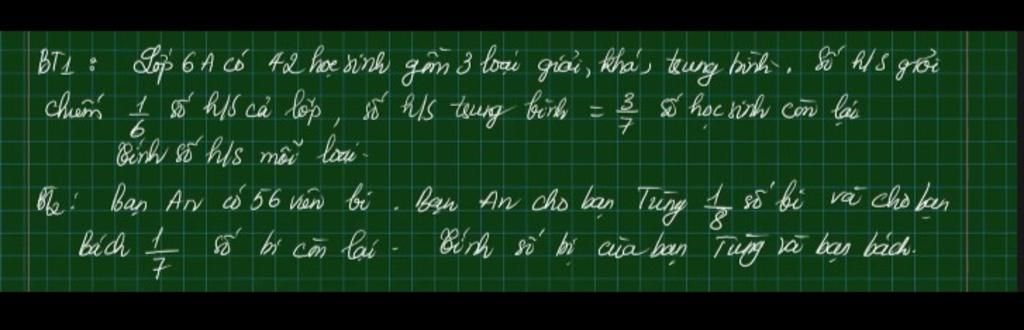 BT1 : Lớp 6A có 42 học sinh gồm 3 loại giỏi, khá, trung bình. Số h/s giỏi
chiếm 1/6 số h/s cả lớp, số h/s trung bình = 3/7 số học sinh còn lại
Tính số h/s mỗi loại.
Bt2: Bạn An có 56 viên bi. Bạn An cho bạn Tùng 1/8 số bi và cho bạn
Bách 1/7 số bi còn lại. Tính số bi của bạn Tùng và bạn bách.